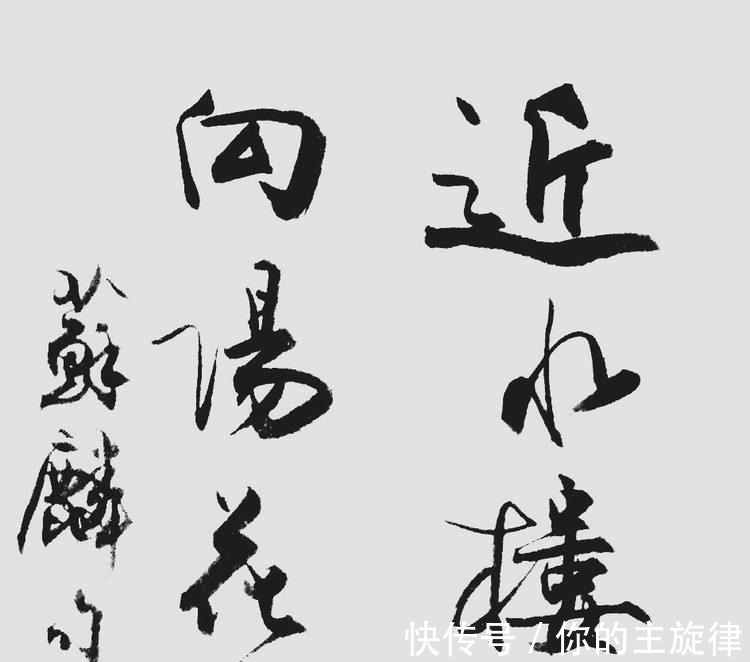 近水樓
向陽花
蘇麟句
快传号 / 你的主旋律